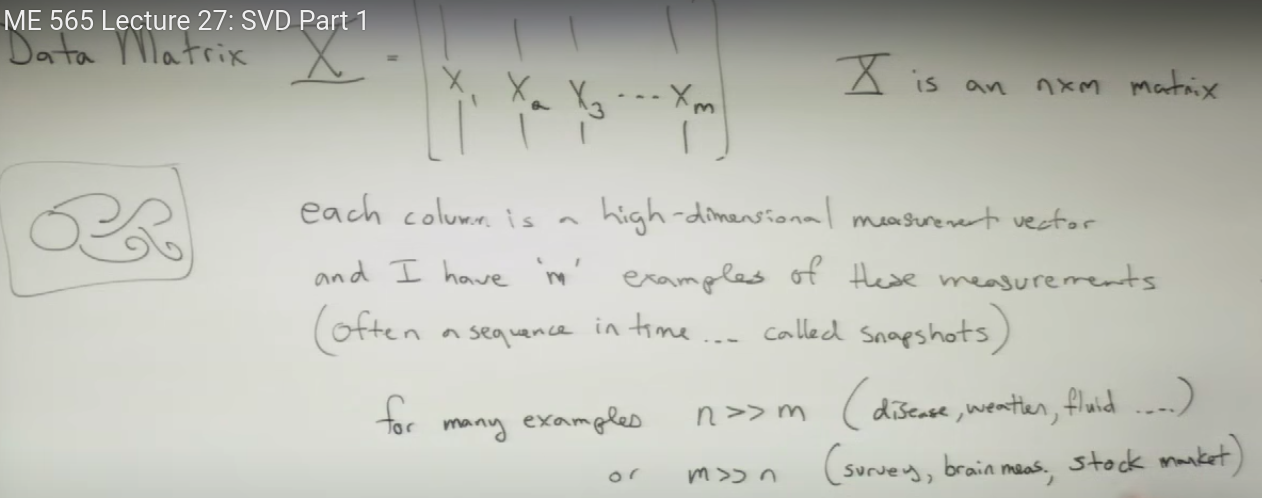 ME 565 Lecture 27: SVD Part 1
Data Matrix X = [x₁ x₂ x₃ ... xₘ] X is an n×m matrix
each column is a high-dimensional measurement vector
and I have 'm' examples of these measurements
(often a sequence in time ... called snapshots)
for many examples n >> m (disease, weather, fluid ....)
or m >> n (survey, brain meas., stock market)